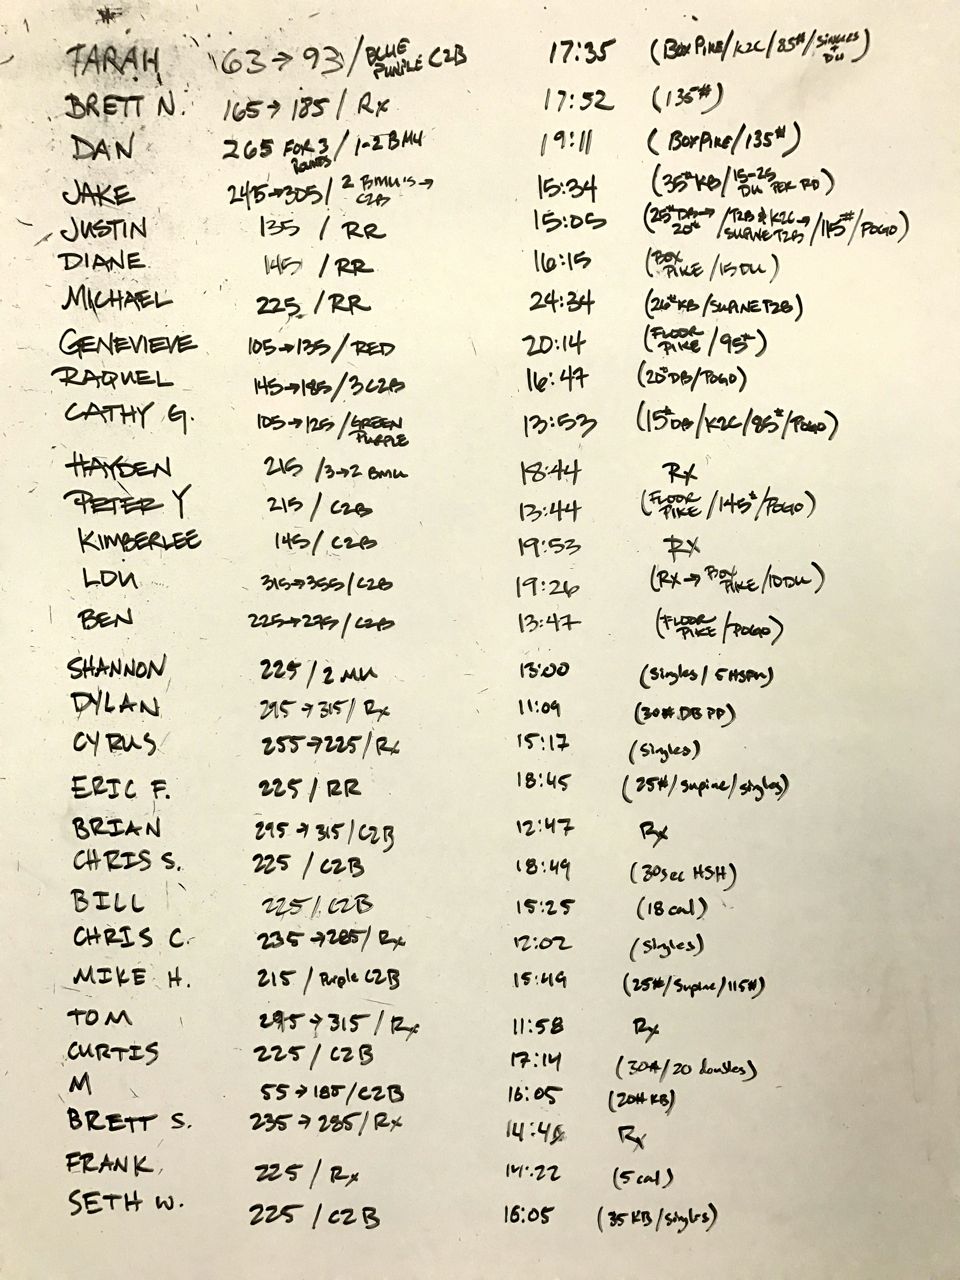 TARAH 63→93/BLUE PURPLE C2B 17:35 (BOX PIKE/K2C/85#/SINGLES + DU)
BRETT N. 165→185/Rx 17:52 (135#)
DAN 265 FOR 3 ROUNDS/1-2 BMU 19:11 (BOX PIKE/135#)
JAKE 245→305/2 BMU'S→C2B 15:34 (35#KB/15-25 DU PER RD)
JUSTIN 135/RR 15:05 (25#DB→20#/T2B & K2C→SUPINE T2B/115#/POGO)
DIANE 145/RR 16:15 (BOX PIKE/15DU)
MICHAEL 225/RR 24:34 (26#KB/SUPINE T2B)
GENEVIEVE 105→135/RED 20:14 (FLOOR PIKE/95#)
RAQUEL 145→185/3 C2B 16:47 (20#DB/POGO)
CATHY G. 105→125/GREEN PURPLE 13:53 (15#DB/K2C/85#/POGO)
HAYDEN 215/3→2 BMU 18:44 Rx
PETER Y 215/C2B 13:44 (FLOOR PIKE/145#/POGO)
KIMBERLEE 145/C2B 19:53 RX
LOU 315→355/C2B 19:26 (RX→BOX PIKE/10DU)
BEN 225→275/C2B 13:47 (FLOOR PIKE/POGO)
SHANNON 225/2 MU 13:00 (Singles/5 HSPU)
DYLAN 295→315/Rx 11:09 (30# DB PP)
CYRUS 255→225/Rx 15:17 (Singles)
ERIC F. 225/RR 18:45 (25#/Supine/singles)
BRIAN 295→315/C2B 12:47 Rx
CHRIS S. 225/C2B 18:49 (30sec HSH)
BILL 225/C2B 15:25 (18 cal)
CHRIS C. 235→285/Rx 12:02 (Singles)
MIKE H. 215/Purple C2B 15:49 (25#/Supine/115#)
TOM 295→315/Rx 11:58 Rx
CURTIS 225/C2B 17:14 (30#/20 doubles)
M 55→185/C2B 16:05 (20# KB)
BRETT S. 235→285/Rx Rx
FRANK 225/Rx 14:22 (5 cal)
SETH W. 225/C2B 16:05 (35 KB/Singles)